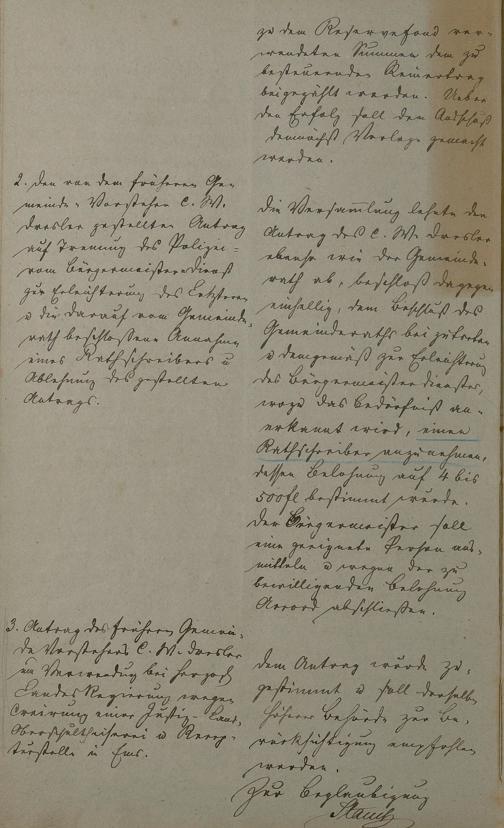 zu dem Reservefond ver-
wendeten Summen dem zu
besteuernden Reinertrag
beigezählt werden. Ueber
den Erfolg soll dem Ausschuß
demnächst Vorlage gemacht
werden.
2. Den von dem früheren Ge-
meinde-Vorsteher C. W.
Dresler gestellten Antrag
auf Trennung des Polizei=
vom Bürgermeistereidienst
zur Erleichterung des Letzteren
u die darauf vom Gemeinde,
rath beschlossene Annahme
eines Rathschreibers u
Ablehnung des gestellten
Antrags.
Die Versammlung lehnte den
Antrag des C. W. Dresler
ebenso wie der Gemeinde,
rath ab, beschloß dagegen
einhellig, dem Beschluß des
Gemeinderaths beizutreten
u demgemäß zur Erleichterung
des Bürgermeisterdienstes,
wozu das Bedürfniß an-
erkannt wird, einen
Rathschreiber anzunehmen,
dessen Belohnung auf 4 bis
500fl bestimmt wurde.
Der Bürgermeister soll
eine geeignete Person aus-
mitteln u wegen der zu
bewilligenden Belohnung
Accord abschließen.
3. Antrag des frühern Gemein-
de Vorstehers C. W. Dresler
um Verwendung bei Herzogl
Landes Regierung wegen
Creirung einer Justiz- Land,
Oberschultheiserei u Recep-
turstelle in Ems.
Dem Antrag wurde zu-
gestimmt u soll derselbe
höherer Behörde zur Be-
rücksichtigung empfohlen
werden.
Zur Beglaubigung